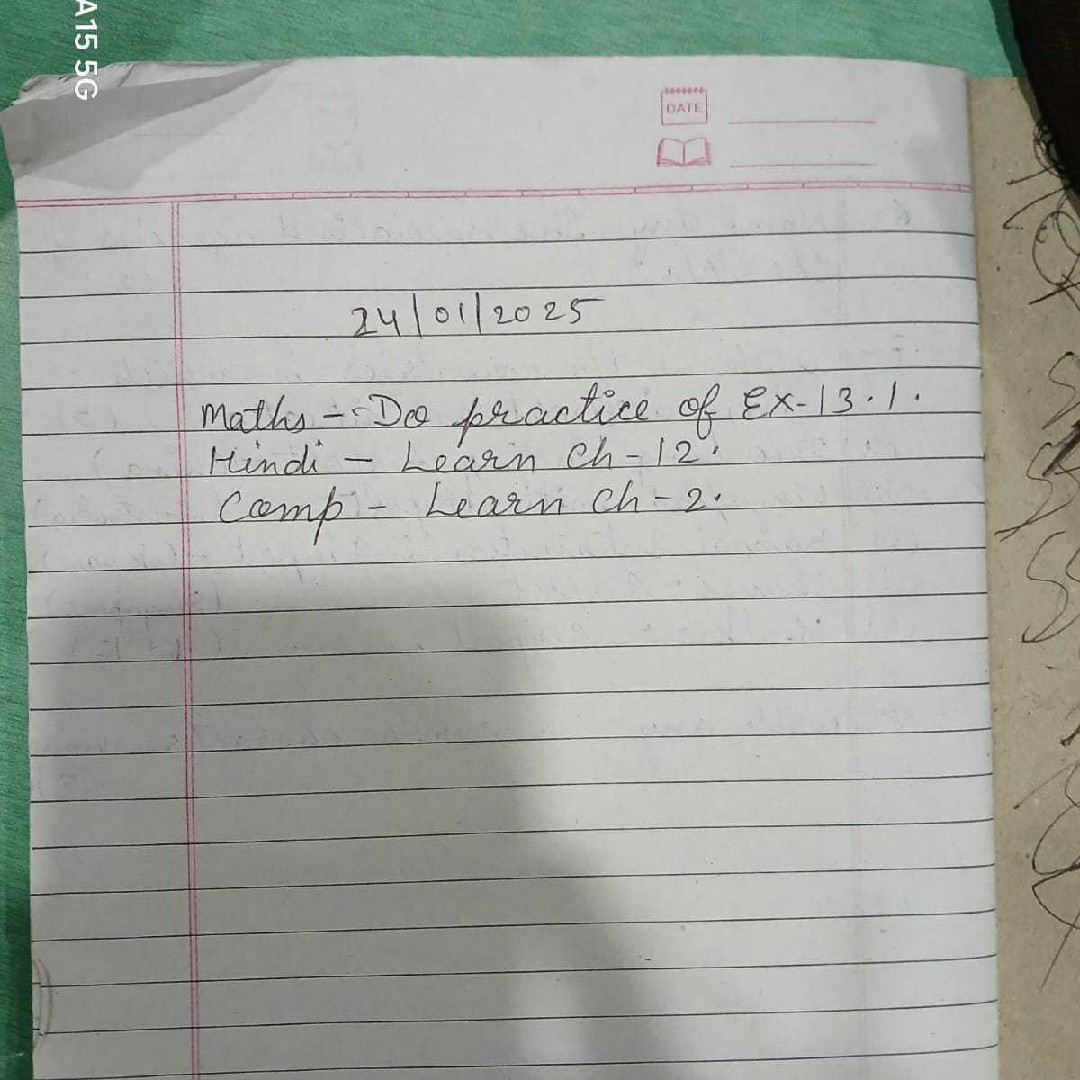 A15 5G
DATE
24/01/2025
Maths - Do practice of Ex-13.1.
Hindi - Learn Ch-12.
Comp - Learn Ch-2.